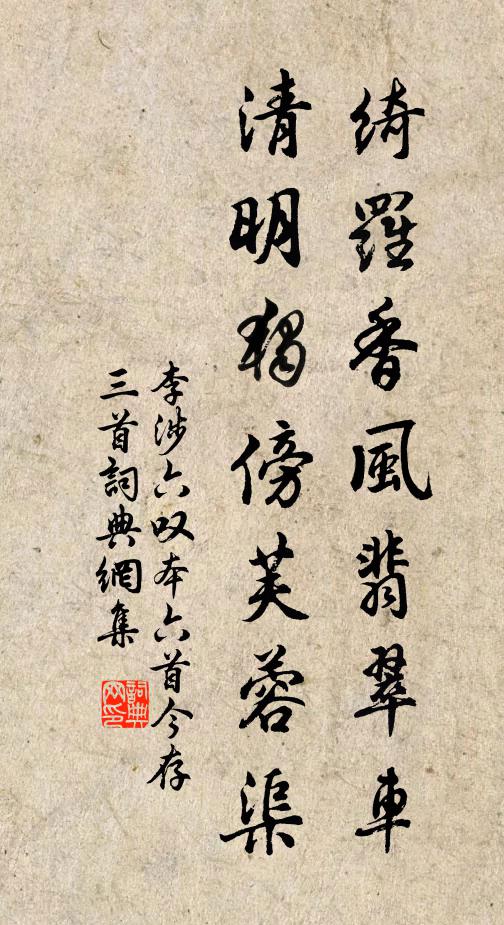 綺羅香風翡翠車
清明獨傍芙蓉渠
李涉六叹本六首今存
三首詞典網集
詞典网印